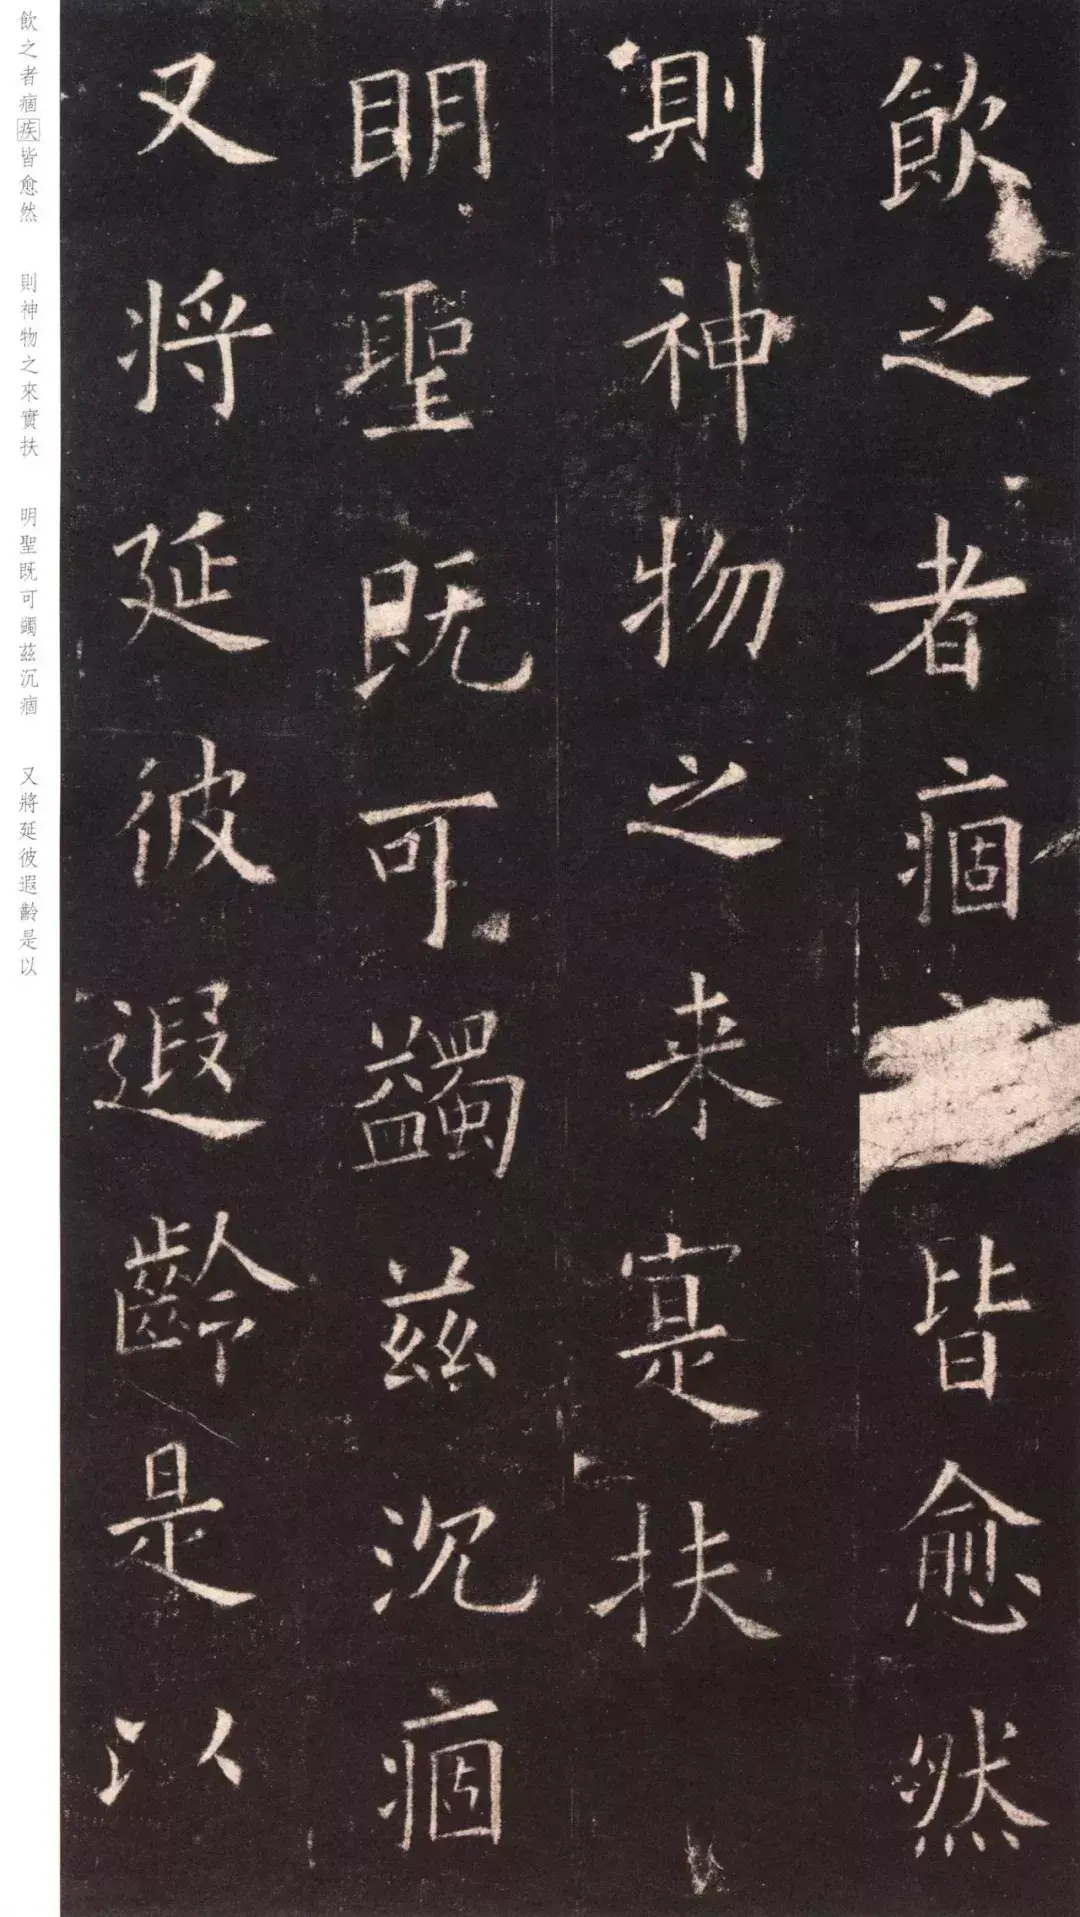 飲之者痼皆愈然
則神物之来寔扶
明聖既可蠲茲沉痼
又将延彼遐齡是以
飲之者痼疾皆愈然
則神物之來實扶
明聖既可蠲茲沉痼
又將延彼遐齡是以